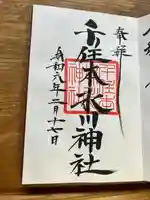 奉拝
千住本氷川神社
令和六年二月十七日